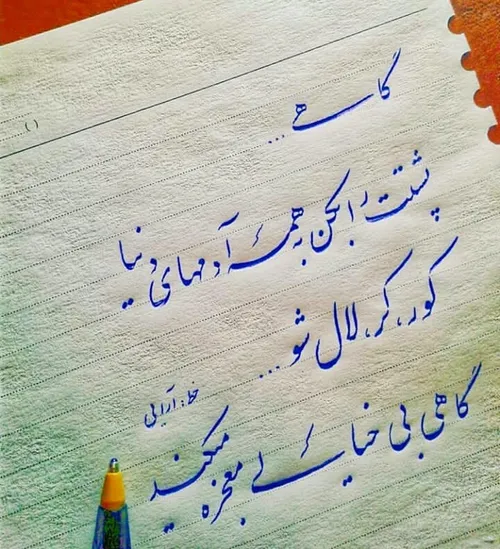 گاهی...
پشتت را بکن به همهٔ آدمهای دنیا
کور، کر، لال شو...
گاهی بی خیالی معجزه میکند
خط: آرایی